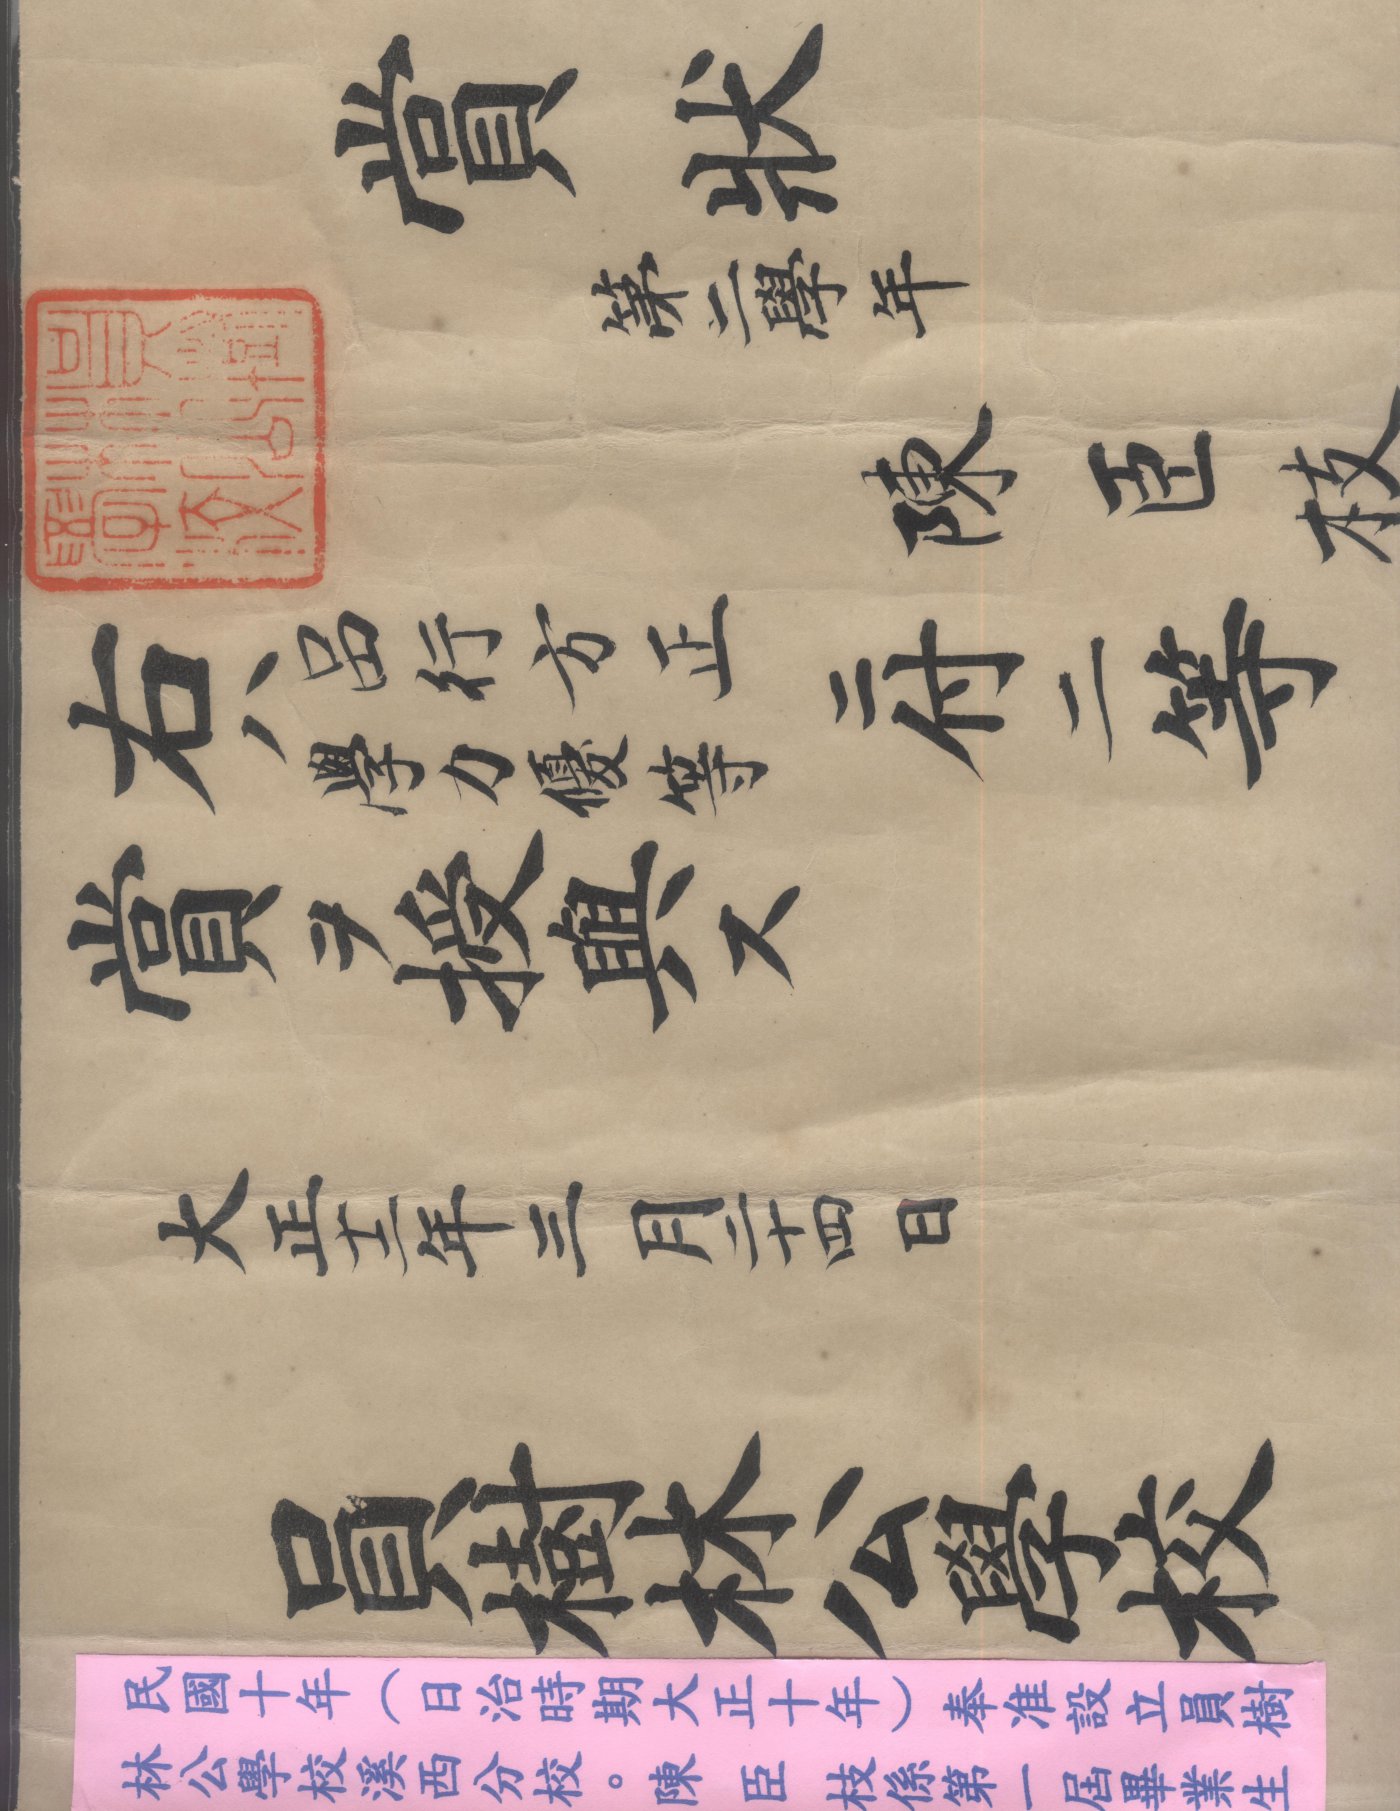 賞狀
第二學年
陳臣枝
右ハ品行方正
學力優等
ニ付二等
賞ヲ授與ス
大正十二年三月二十四日
員樹林公學校
民國十年（日治時期大正十年）奉准設立員樹
林公學校溪西分校。陳臣枝係第一屆畢業生